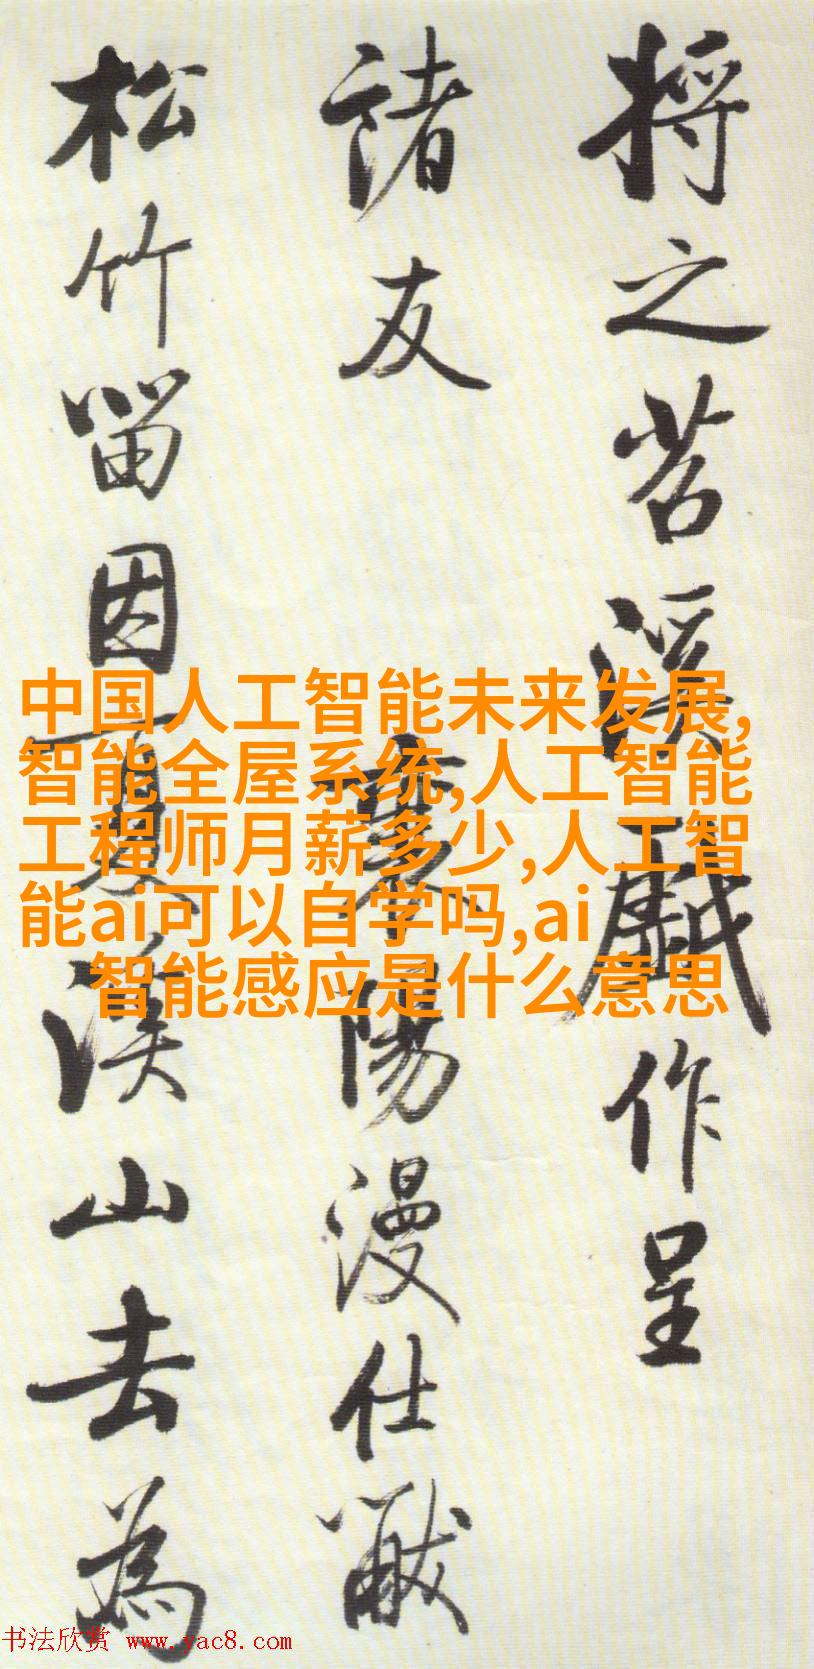 将之苕溪戲作呈
諸友
襄陽漫仕黻
松竹留因夏溪山去為
中国人工智能未来发展,
智能全屋系统,人工智能
工程师月薪多少,人工智
能ai可以自学吗,ai
智能感应是什么意思
书法欣赏 www.yac8.com